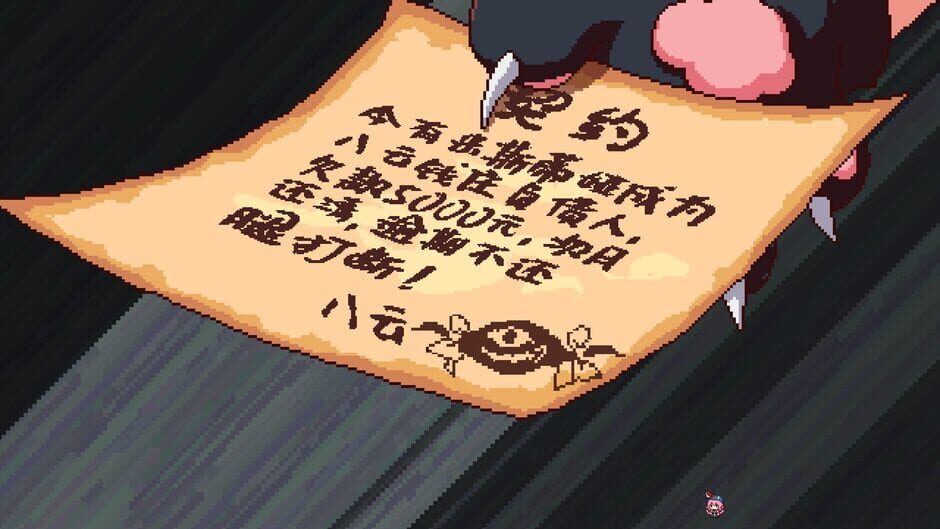 契约
今有斯蒂娅成为
八云钱庄负债人,
欠款5000元,如月
还清,逾期不还
腿打断!
八云